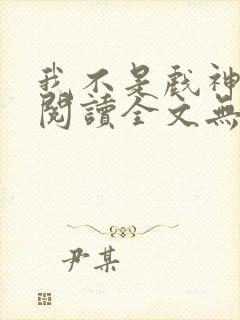 我不是戲神
閱讀全文無
尹某